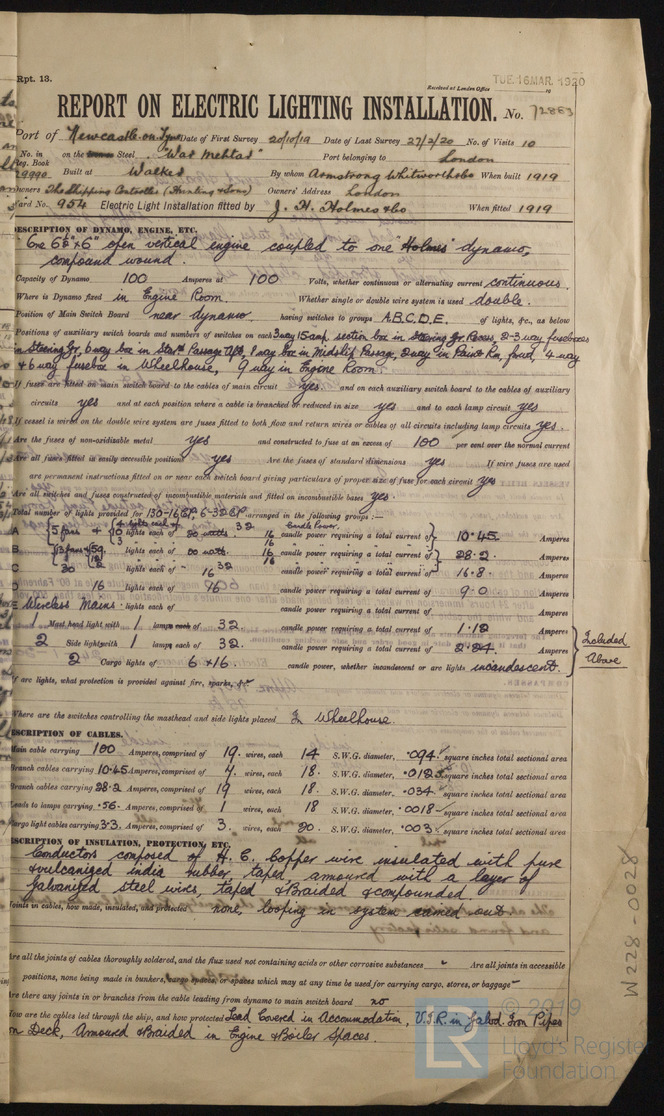 Rpt. 13.
TUE. 16 MAR. 1920
Received at London Office
REPORT ON ELECTRIC LIGHTING INSTALLATION. No. 72863
Port of Newcastle-on-Tyne Date of First Survey 20/10/19 Date of Last Survey 27/2/20 No. of Visits 10
No. in on the Steel "War Mehtar" Port belonging to London
Reg. Book
29990 Built at Walker By whom Armstrong Whitworth & Co When built 1919
Owners The Shipping Controller (Hunting & Son) Owners' Address London
Yard No. 954 Electric Light Installation fitted by J. H. Holmes & Co When fitted 1919
DESCRIPTION OF DYNAMO, ENGINE, ETC.
open vertical engine coupled to one "Holmes" dynamo,
compound wound.
Capacity of Dynamo 100 Amperes at 100 Volts, whether continuous or alternating current continuous
Where is Dynamo fixed in Engine Room. Whether single or double wire system is used double.
Position of Main Switch Board near dynamo having switches to groups A.B.C.D.E. of lights, &c., as below
Positions of auxiliary switch boards and numbers of switches on each 3 way 15 amp section box in Steering Gr. Recess, 2-3 way fuseboxes
in Steering Gr, 6 way box in Starbd Passage Aft, 8 way box in Midship Passage, 2 way in Paint Rm, fourd, 4 way
& 6 way fusebox in Wheelhouse, 9 way in Engine Room.
If fuses are fitted on main switch board to the cables of main circuit yes and on each auxiliary switch board to the cables of auxiliary
circuits yes and at each position where a cable is branched or reduced in size yes and to each lamp circuit yes
If vessel is wired on the double wire system are fuses fitted to both flow and return wires or cables of all circuits including lamp circuits yes.
Are the fuses of non-oxidizable metal yes and constructed to fuse at an excess of 100 per cent over the normal current
Are all fuses fitted in easily accessible positions yes Are the fuses of standard dimensions yes If wire fuses are used
are permanent instructions fitted on or near each switch board giving particulars of proper size of fuse for each circuit yes
Are all switches and fuses constructed of incombustible materials and fitted on incombustible bases yes.
Total number of lights provided for 130-16 CP 6-32 CP arranged in the following groups :—
A 5 fans + 10 lights each of 32 candle power requiring a total current of 10.45 Amperes
B lights each of 16 candle power requiring a total current of 28.2 Amperes
C 30 lights each of 16 candle power requiring a total current of 16.8 Amperes
D 16 lights each of 16 candle power requiring a total current of 9.0 Amperes
E Wireless Mains. lights each of candle power requiring a total current of Amperes
1 Mast head light with 1 lamps each of 32. candle power requiring a total current of 1.12 Amperes
2 Side light with 1 lamps each of 32. candle power requiring a total current of 2.24 Amperes
Included Above
2 Cargo lights of 6 x 16. candle power, whether incandescent or arc lights incandescent.
If arc lights, what protection is provided against fire, sparks, &c.
Where are the switches controlling the masthead and side lights placed In Wheelhouse.
DESCRIPTION OF CABLES.
Main cable carrying 100 Amperes, comprised of 19. wires, each 14 S.W.G. diameter, .094 square inches total sectional area
Branch cables carrying 10.45 Amperes, comprised of 7. wires, each 18. S.W.G. diameter, .0125 square inches total sectional area
Branch cables carrying 28.2 Amperes, comprised of 19 wires, each 18. S.W.G. diameter, .034 square inches total sectional area
Leads to lamps carrying .56. Amperes, comprised of 1 wires, each 18 S.W.G. diameter, .0018 square inches total sectional area
Cargo light cables carrying 3.3. Amperes, comprised of 3. wires, each 20. S.W.G. diameter, .003 square inches total sectional area
DESCRIPTION OF INSULATION, PROTECTION, ETC.
Conductors composed of H. C. Copper wire insulated with pure
& vulcanized india rubber, taped, armoured with a layer of
galvanized steel wires, taped & Braided & compounded.
Joints in cables, how made, insulated, and protected none, looping in system carried out.
Are all the joints of cables thoroughly soldered, and the flux used not containing acids or other corrosive substances " Are all joints in accessible
positions, none being made in bunkers, cargo spaces, or spaces which may at any time be used for carrying cargo, stores, or baggage
Are there any joints in or branches from the cable leading from dynamo to main switch board no
How are the cables led through the ship, and how protected Lead Covered in Accommodation, V.I.R. in Galvd. Iron Pipes
on Deck, Armoured & Braided in Engine & Boiler Spaces.
W228-0028
© 2019
LR
Lloyd's Register
Foundation